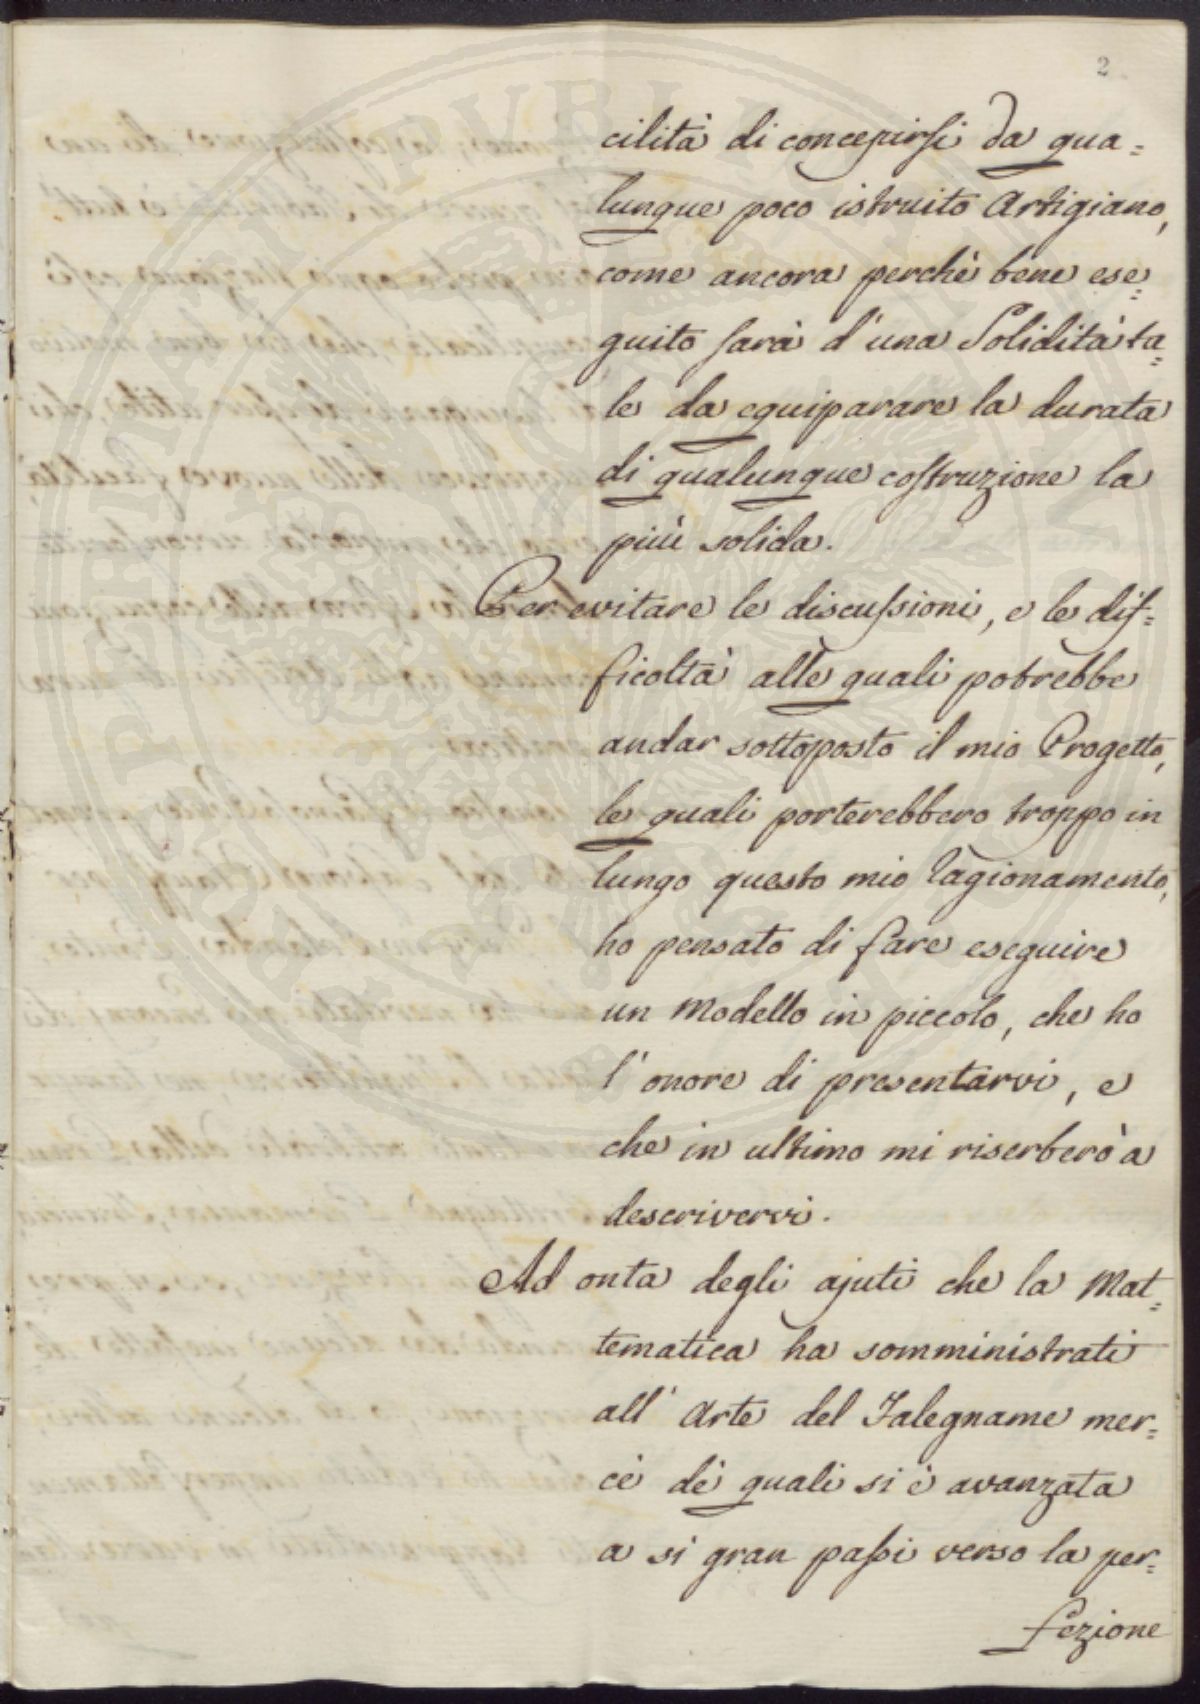 2
cilità di concepirsi da qua=
lunque poco istruito Artigiano,
come ancora perchè bene ese=
guito sarà d'una Solidità ta=
le da equiparare la durata
di qualunque costruzione la
più solida.
Per evitare le discussioni, e le dif=
ficoltà alle quali potrebbe
andar sottoposto il mio Progetto,
le quali porterebbero troppo in
lungo questo mio ragionamento,
ho pensato di fare eseguire
un Modello in piccolo, che ho
l'onore di presentarvi, e
che in ultimo mi riserberò a
descrivervi.
Ad onta degli ajuti che la Mat=
tematica ha somministrati
all'Arte del Falegname mer=
cè dè quali si è avanzata
a si gran passi verso la per=
fezione